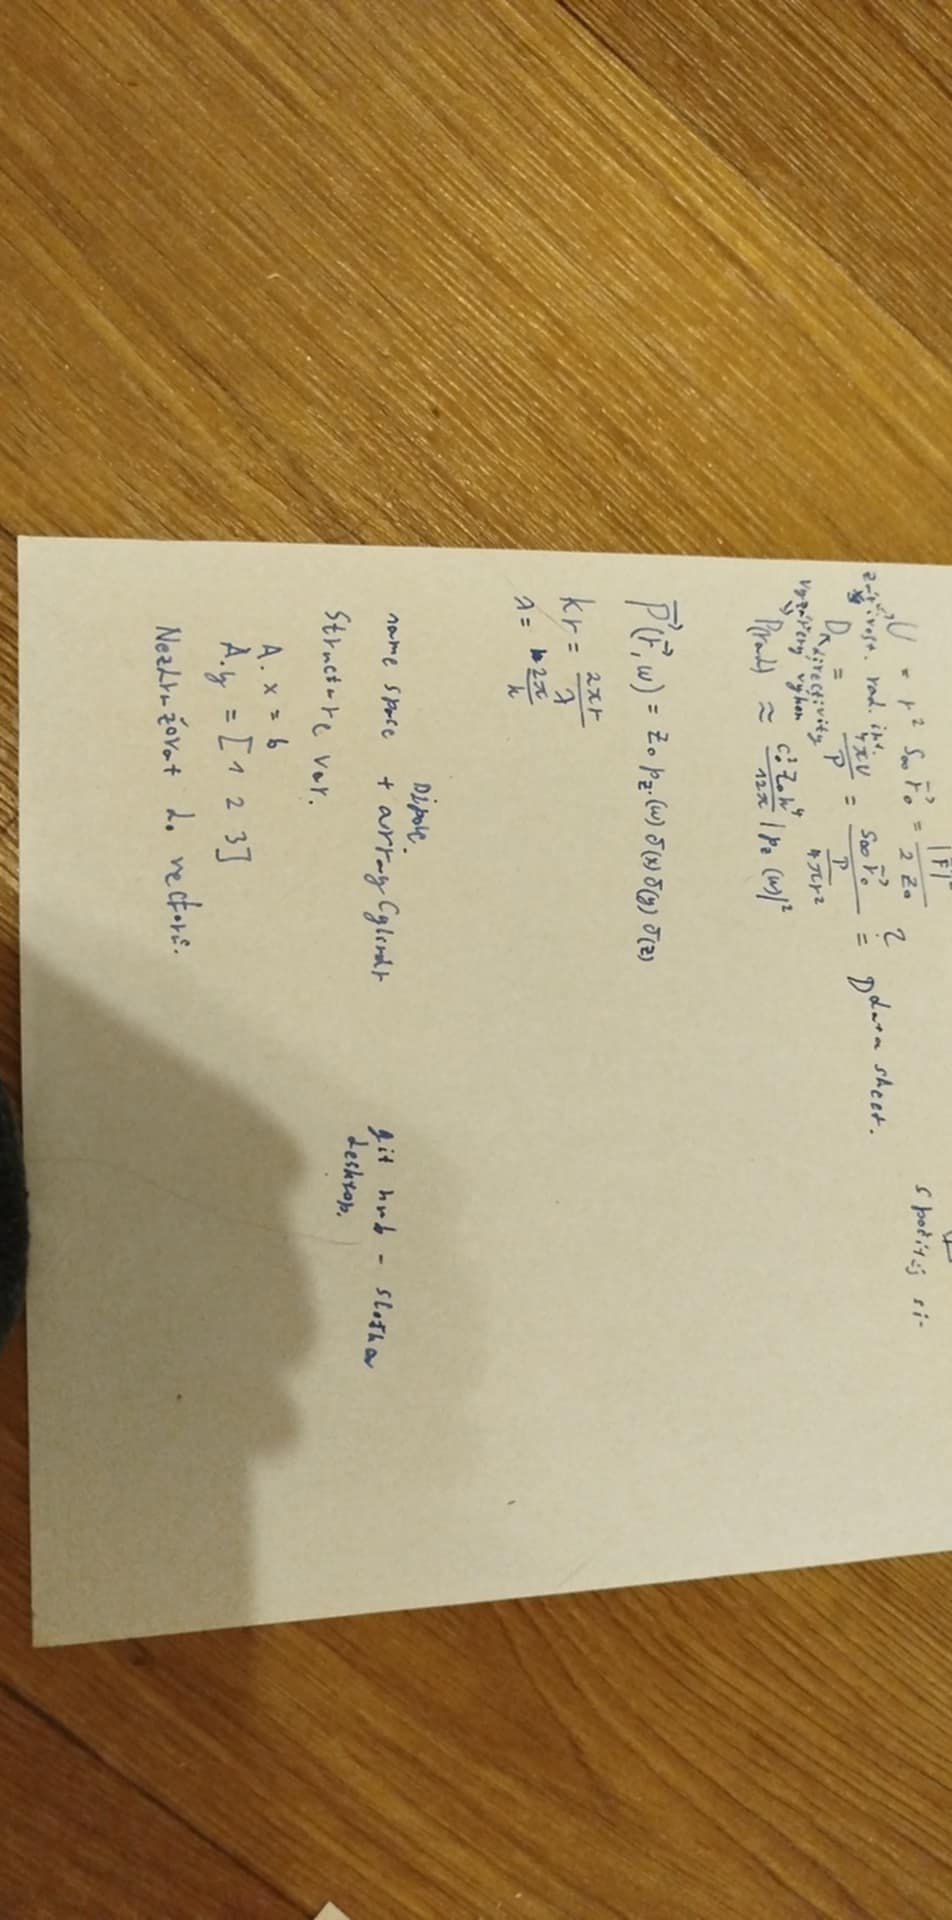 U = r² S∞ r⃗₀ = |F|² / 2 Z₀
spočítej si
rad. int.
D = 4πU / P = S∞ r⃗₀ / (P / 4πr²) ?= D data sheet.
directivity
vyzářený výkon
P(rad) ≈ c₀² Z₀ k⁴ / 12π |p_z (ω)|²
P⃗(r⃗,ω) = z₀ p_z (ω) δ(x) δ(y) δ(z)
kr = 2πr / λ
λ = 2π / k
Dipole.
name space + array
git hub -
desktop.
Structure var.
A. x = b
A.y = [1 2 3]
Nezdružovat do vectorů.